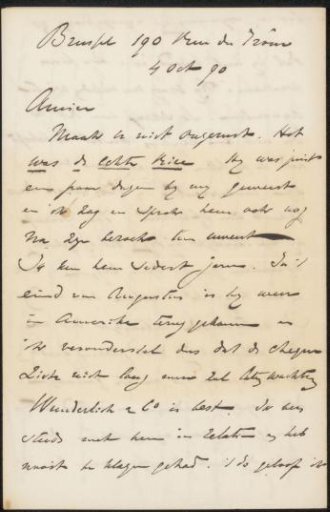 Brussel 190 Rue du Trône
4 Oct 90
Amice
Maak U niet ongerust. Het
was de echte Hij was juist
een paar dagen bij mij geweest
en ik zag en sprak hem ook nog
na zijn bezoek
Ik ken hem sedert jaren. In 't
eind van Augustus is hij weer
in Amerika terug gekomen en
ik veronderstel dus dat de
niet lang meer zal
Wunderlich & Co is best. Ik ben
steeds met hem in relatie en heb
nooit te klagen gehad. geloof ik